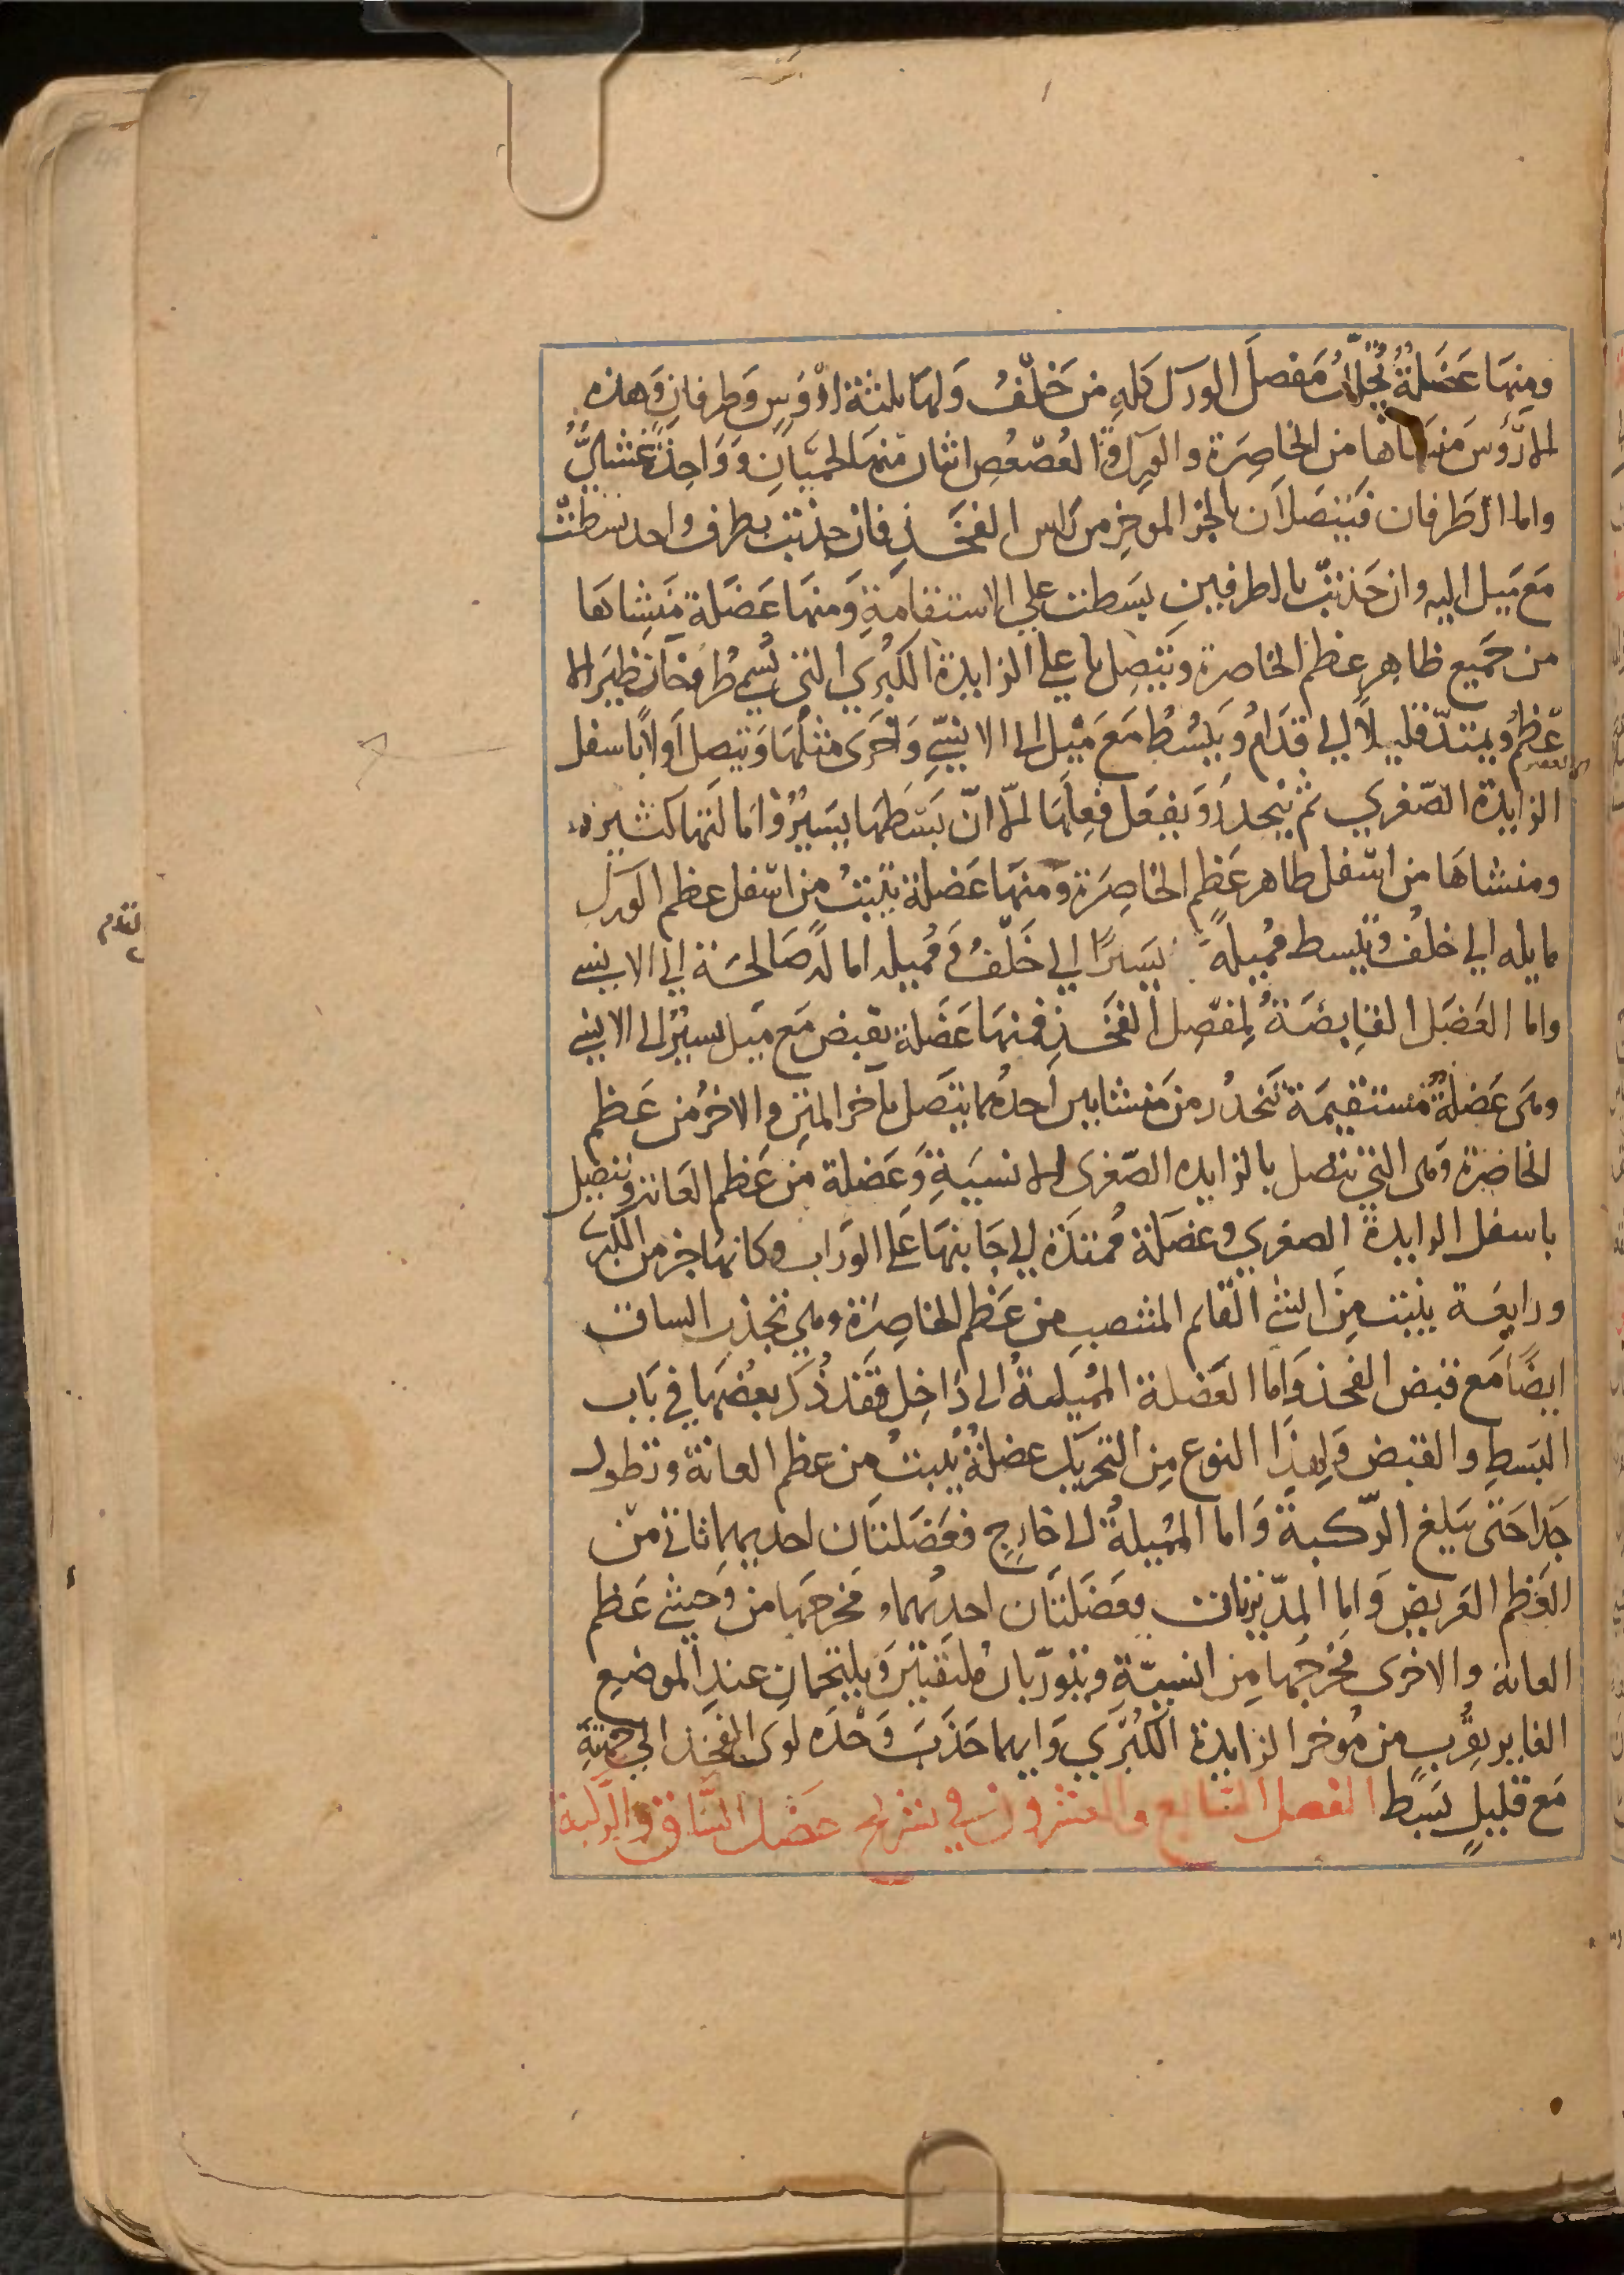 ومنها عضلة تجلل مفصل الورك كله من خلف ولها ثلثة ارؤس وطرفان وهذه
الارؤس منشاها من الخاصرة والورك والعصعص اثنان منها لحميان وواحد غشايى
واما الطرفان فيتصلان بالجز الموخر من راس الفخذ فان جذبت بطرف واحد بسطت
مع ميل اليه وان جذبت بالطرفين بسطت على الاستقامة ومنها عضلة منشاها
من جميع ظاهر عظم الخاصرة وتتصل باعلى الزايدة الكبرى التى تسمى طروخانطير الا
عظم ويمتد قليلا الى قدام ويبسط مع ميل الى الانسى واخرى مثلها وتتصل اولا باسفل
الزايدة الصغرى ثم ينحدر ويفعل فعلها الا ان بسطها يسير وامالتها كثيرة
ومنشاها من اسفل ظاهر عظم الخاصرة ومنها عضلة تنبت من اسفل عظم الورك
مايله الى خلف وتبسط مميلة يسيرا الى خلف ومميله امالة صالحة الى الانسى
واما العضل القابضة لمفصل الفخذ فمنها عضلة تقبض مع ميل يسير الى الانسى
وهى عضلة مستقيمة تنحدر من منشايين احدهما يتصل باخر المتن والاخر من عظم
الخاصرة وهى التى تتصل بالزايده الصغرى الانسية وعضلة من عظم العانة وتتصل
باسفل الزايدة الصغرى وعضلة ممتدة الى جانبها على الوراب وكانها جز من الكبرى
ورابعة ينبت من الشى القايم المنتصب من عظم الخاصرة وهى تجذب الساق
ايضا مع قبض الفخذ واما العضلة المميلة الى داخل فقد ذكر بعضها فى باب
البسط والقبض ولهذا النوع من التحريك عضلة ينبت من عظم العانة وتطول
جدا حتى يبلغ الركبة واما المميلة الى خارج فعضلتان احديهما تاتى من
العظم العريض واما المديرتان فعضلتان احديهما مخرجها من وحشى عظم
العانة والاخرى مخرجها من انسيته ويتوربان ملتقيين ويلتحمان عند الموضع
الغاير بقرب من موخر الزايدة الكبرى وايهما جذبت وحده لوى الفخذ الى جهته
مع قليل بسط الفصل السابع والعشرون فى تشريح عضل الساق والركبة